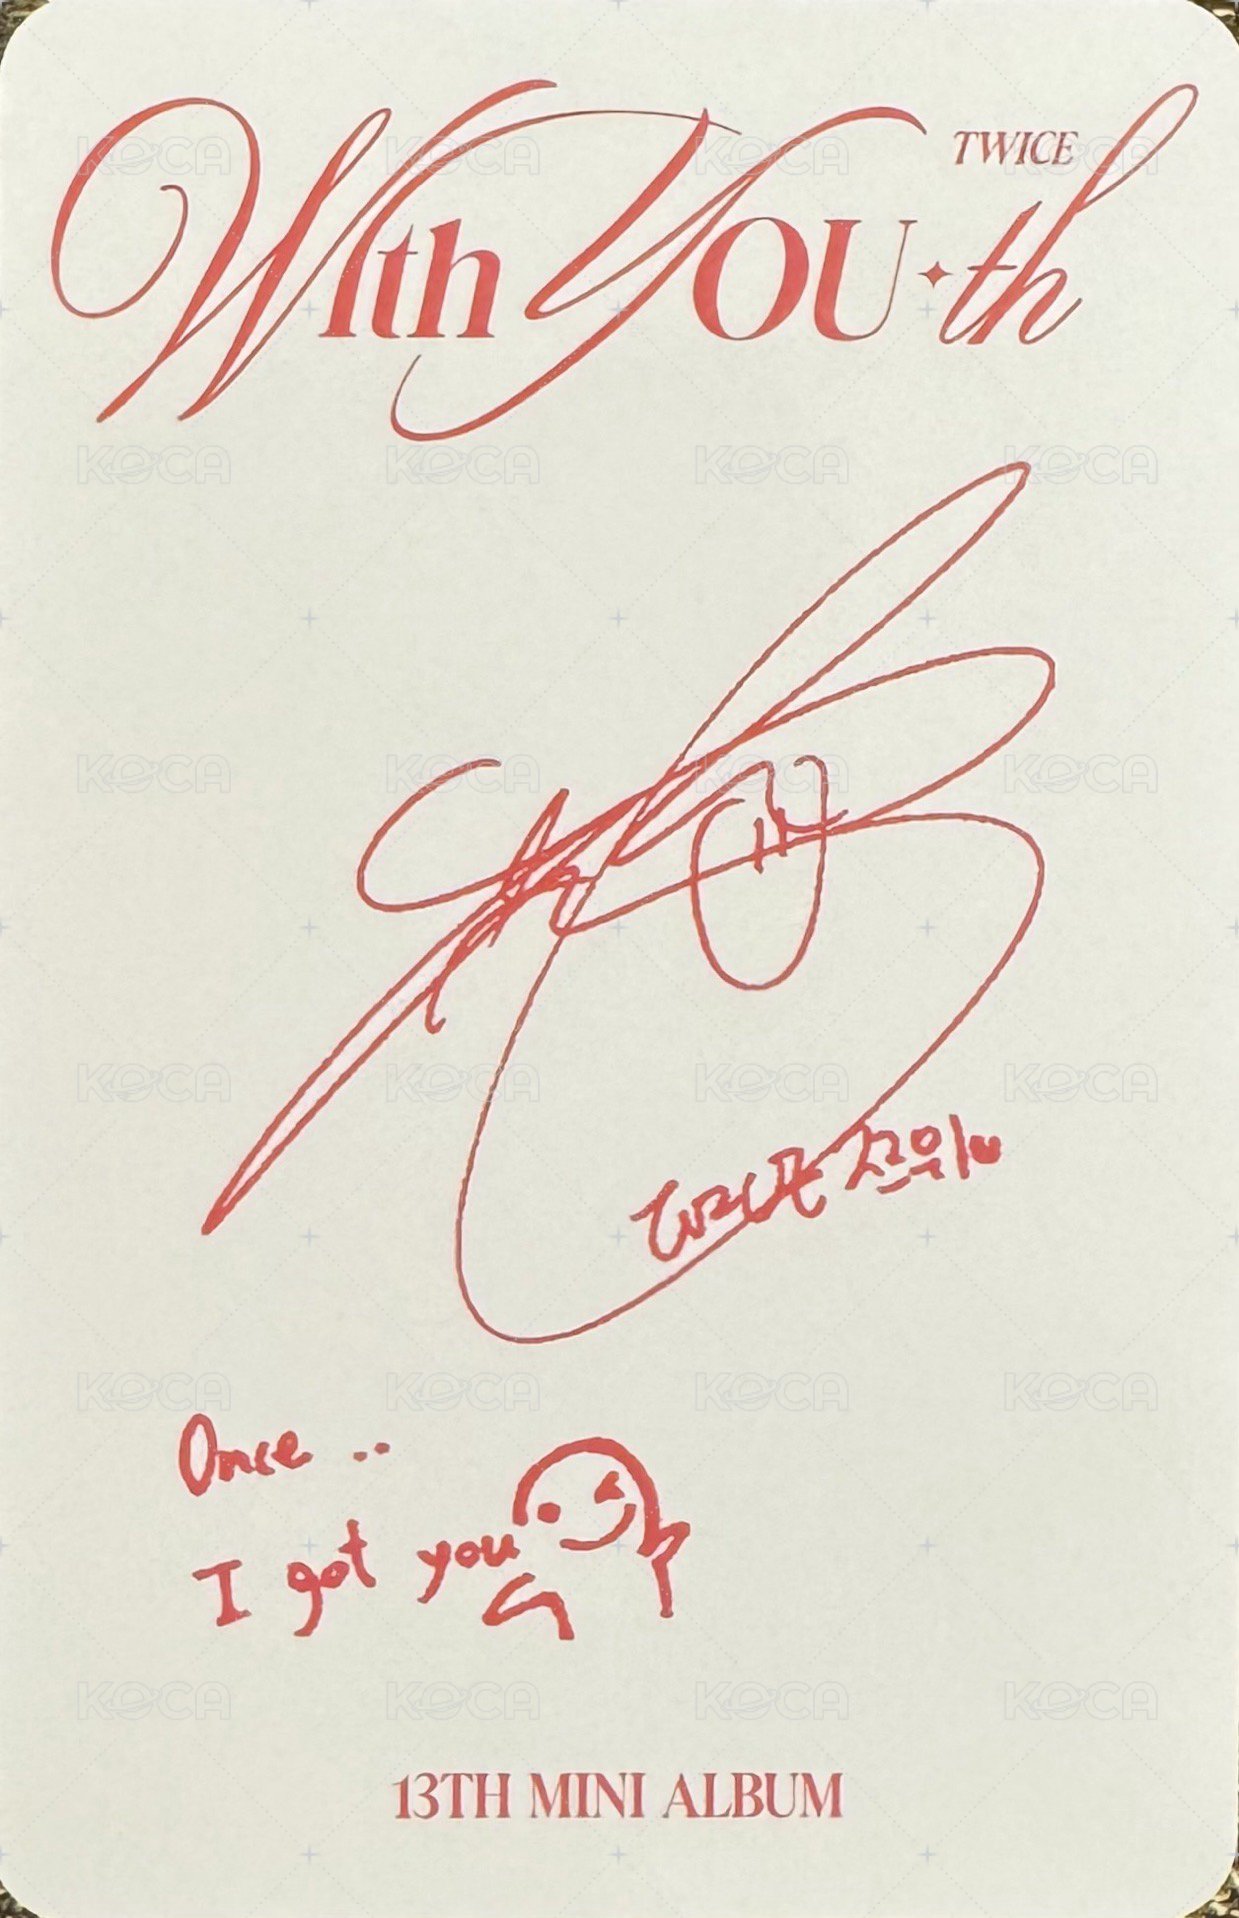 TWICE
With YOU-th
Once ..
I got you
13TH MINI ALBUM
KOCA